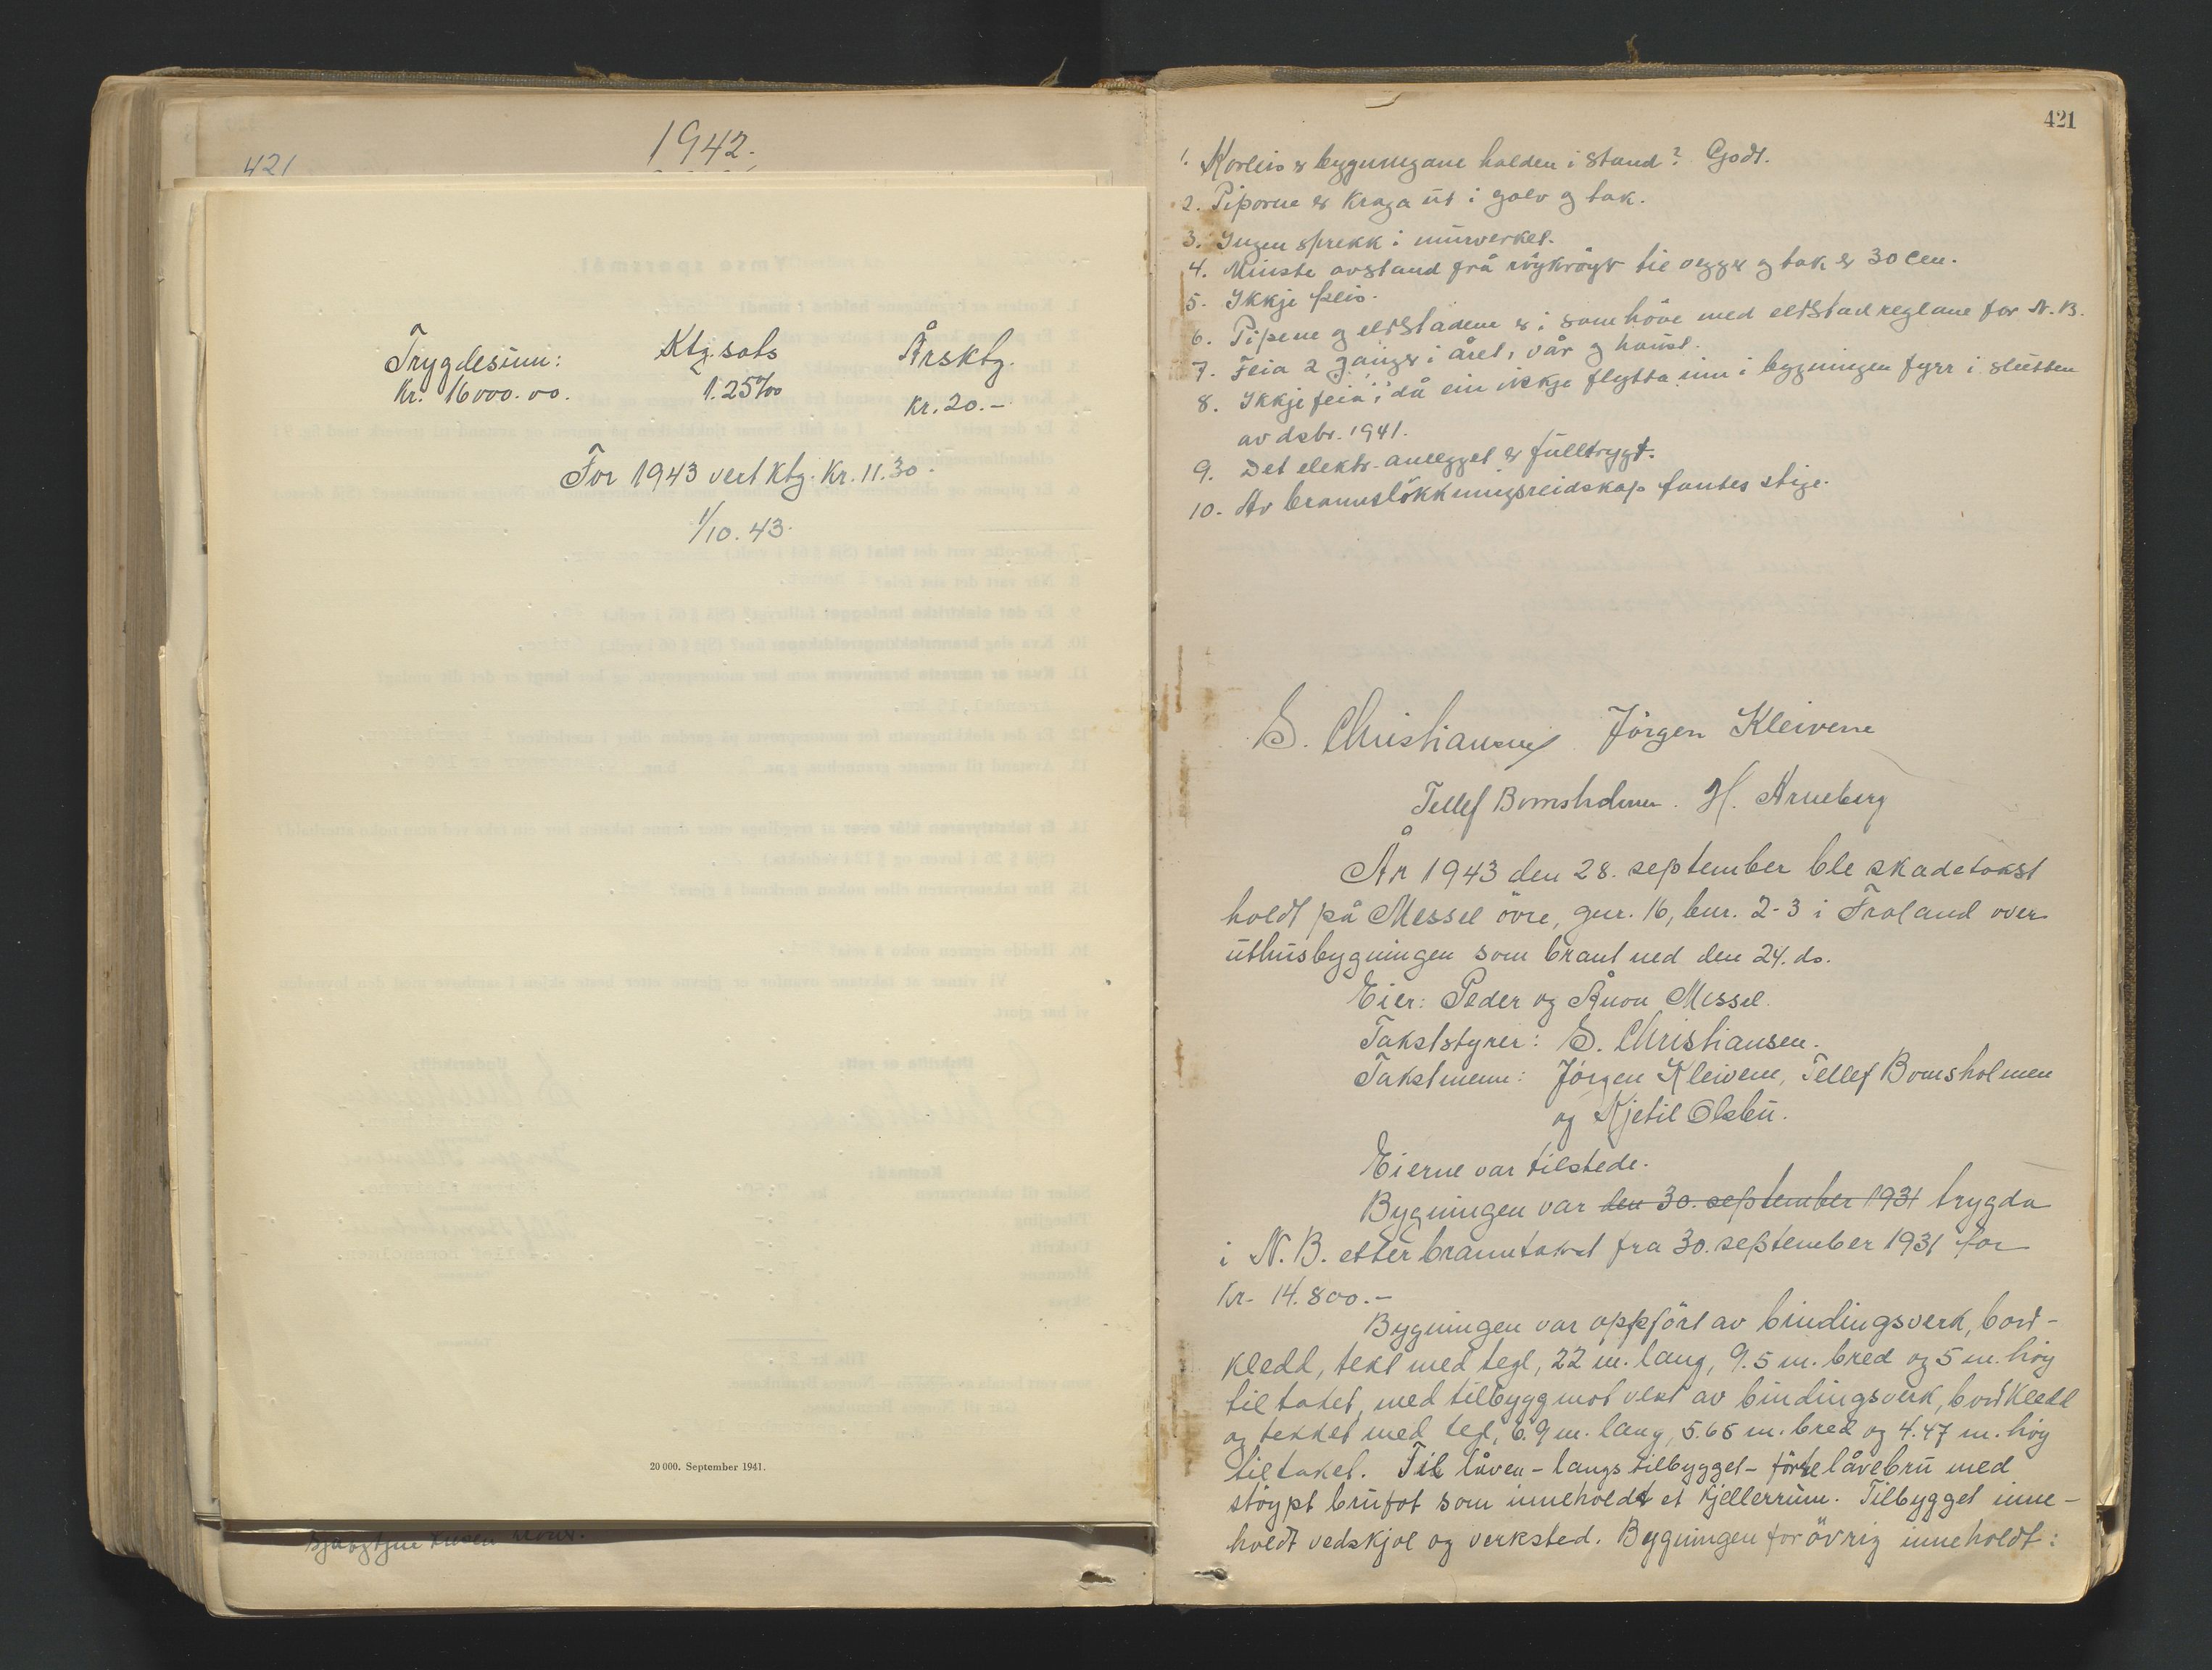 1942.
421
Trygdesum: Ktg. sats Årsktg.
Kr. 16000.00. 1.25‰ Kr. 20.-
For 1943 vert ktg. Kr. 11.30.
1/10. 43.
20 000. September 1941.
421
1. Korleis er bygningane halden i stand? Godt.
2. Piporne er kraga ut i golv og tak.
3. Ingen sprekk i murverket.
4. Minste avstand frå röykröyr til vegger og tak er 30 cm.
5. Ikkje peis.
6. Pipene og eldstadene er i samhöve med eldstadreglane for N. B.
7. Feia 2 ganger i året, vår og haust.
8. Ikkje feia, då ein ikkje flytta inn i bygningen fyrr i slutten
av dsbr. 1941.
9. Det elektr. anlegget er fulltrygt.
10. Av brannslökkningsreidskap fantes stige.
S. Christiansen Jörgen Kleivene
Tellef Bomsholmen. H. Arneberg
År 1943 den 28. september ble skadetakst
holdt på Messel övre, gnr. 16, bnr. 2-3 i Froland over
uthusbygningen som brant ned den 24. ds.
Eier: Peder og Anon Messel.
Takststyrer: S. Christiansen.
Takstmenn: Jörgen Kleivene, Tellef Bomsholmen
og Kjetil Olsbu.
Eierne var tilstede.
Bygningen var den 30. september 1931 trygda
i N. B. etter branntakst fra 30. september 1931 for
Kr. 14.800.-
Bygningen var oppfört av bindingsverk, bord-
kledd, tekt med tegl, 22 m. lang, 9.5 m. bred og 5 m. höy
til taket, med tilbygg mot vest av bindingsverk, bordkledd
og tekket med tegl, 6.9 m. lang, 5.65 m. bred og 4.47 m. höy
til taket. Til låven - langs tilbygget - förte låvebru med
stöypt brufot som inneholdt et kjellerrum. Tilbygget inne-
holdt vedskjol og verksted. Bygningen forövrig inneholdt: